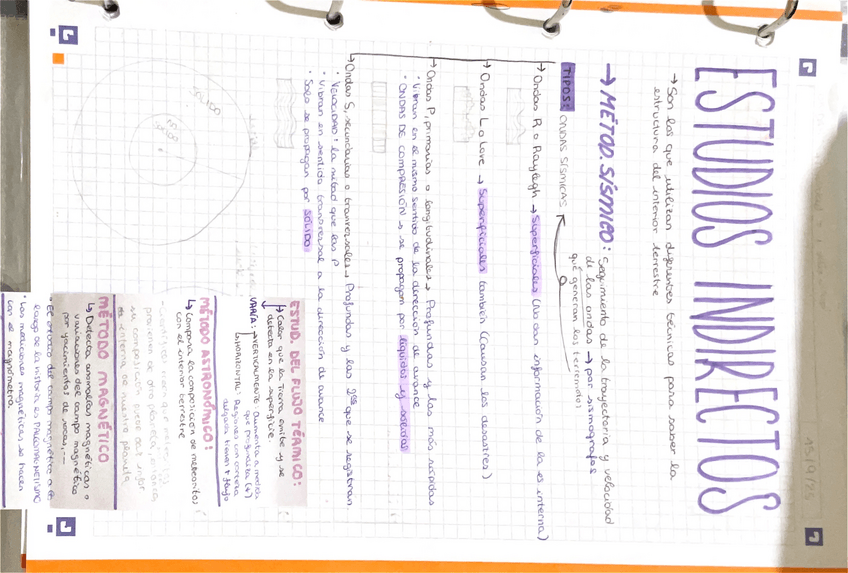 15/9/25
ESTUDIOS INDIRECTOS
→ Son los que utilizan diferentes técnicas para saber la
estructura del interior terrestre
→ MÉTOD. SÍSMICO: Seguimiento de la trayectoria y velocidad
de las ondas → por sismógrafos
que generan los terremotos
TIPOS: ONDAS SÍSMICAS
→ Ondas R o Rayleigh → Superficiales (No dan información de la es interna)
→ Ondas L o Love → Superficiales también (Causan los desastres)
→ Ondas P, primarias o longitudinales → Profundas y las más rápidas
· Vibran en el mismo sentido de la dirección de avance
· ONDAS DE COMPRESIÓN → se propagan por líquidos y sólidos
→ Ondas S, secundarias o transversales → Profundas y las 2as que se registran
· VELOCIDAD: la mitad que las P
· Vibran en sentido transversal a la dirección de avance
· Solo se propagan por SÓLIDO
SÓLIDO
ESTUD. DEL FLUJO TÉRMICO:
↳ Calor que la Tierra emite y se
detecta en la superficie.
VARÍA: VERTICALMENTE aumenta a medida
que profundiza
HORIZONTAL: Regiones con corteza
delgada tienen + flujo
MÉTODO ASTRONÓMICO:
↳ Compara la composición de meteoritos
con el interior terrestre
su composición puede ser similar
interna de nuestro planeta
MÉTODO MAGNÉTICO
↳ Detecta anomalías magnéticas o
variaciones del campo magnético
por yacimientos de rocas, ...
· El estudio del campo magnético a
largo de la historia es PALEOMAGNETISMO
· Las mediciones magnéticas se hacen
con el magnómetro